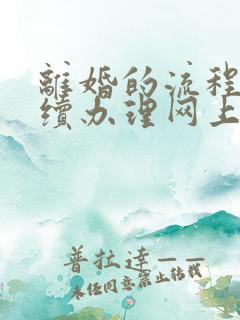 離婚的流程
續办理网上
普拉達——
未任同意禁止转载